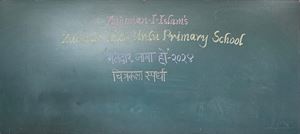 Anjuman-I-Islam's
Urdu Primary School
मतदार जागा हो-२०२४
चित्रकला स्पर्धा